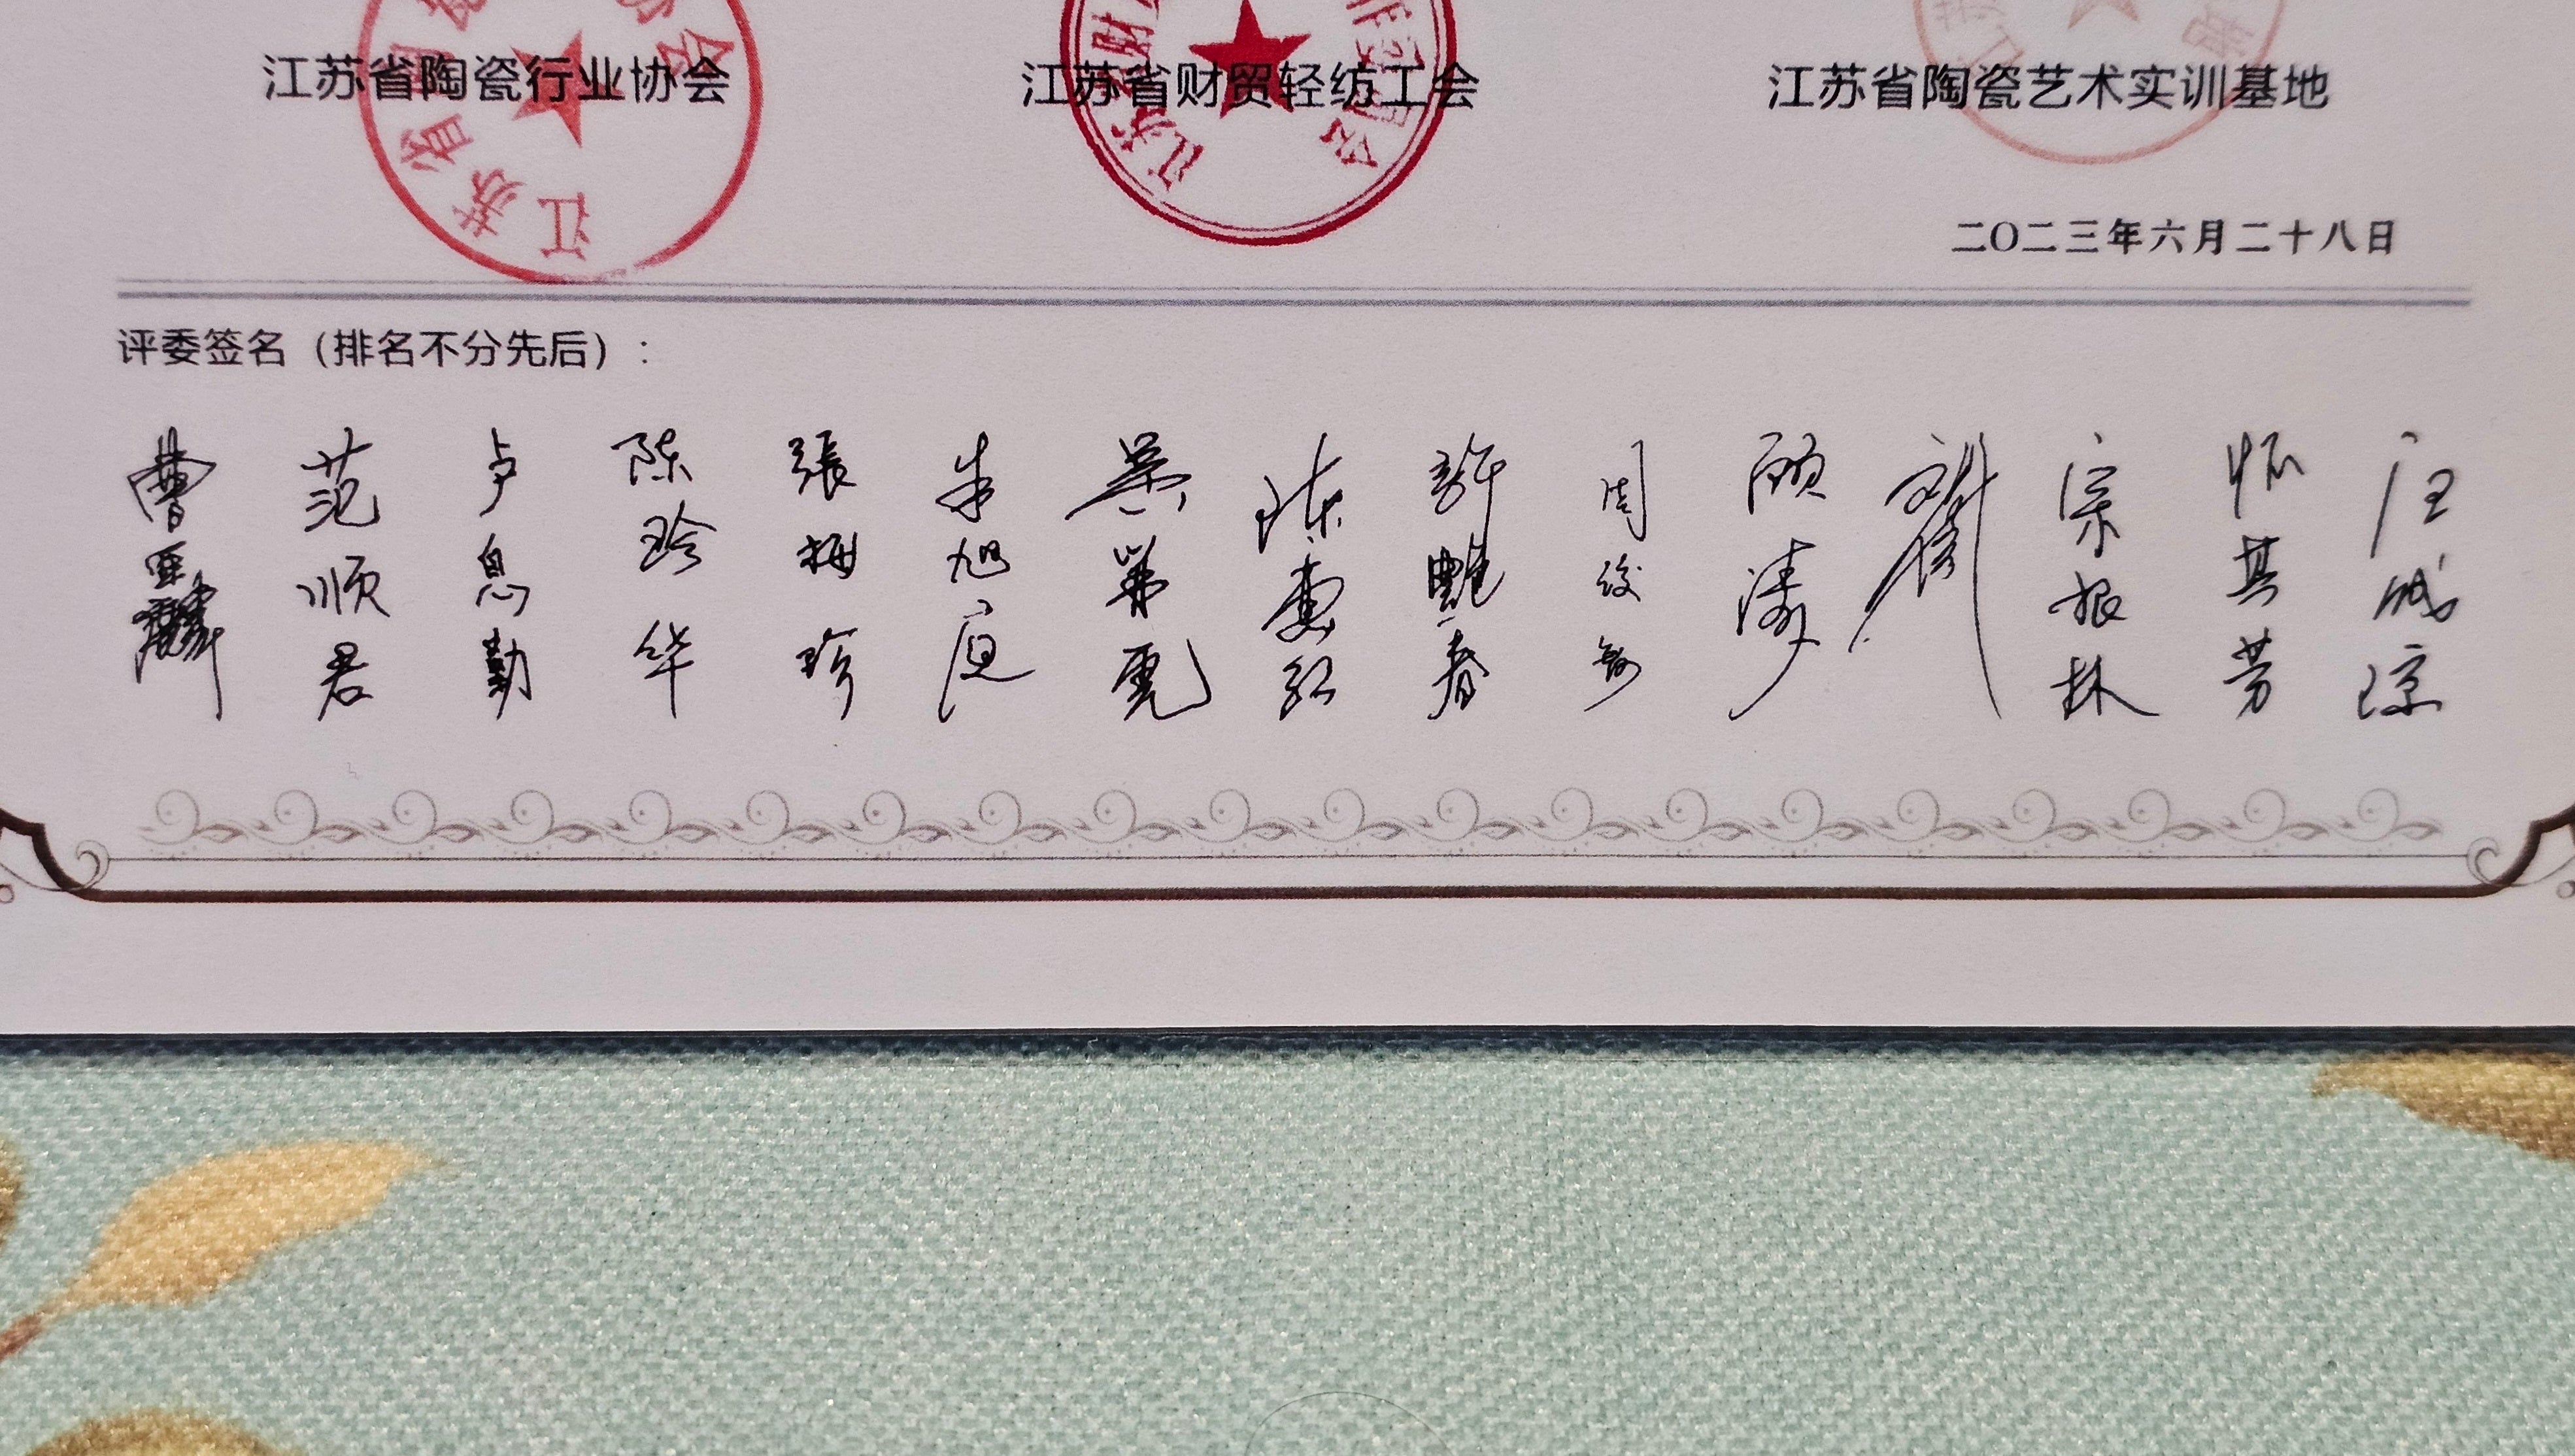 江苏省陶瓷行业协会 江苏省财贸轻纺工会 江苏省陶瓷艺术实训基地
二〇二三年六月二十八日
评委签名（排名不分先后）：
曹亚麟
范顺君
卢息勤
陈玲华
張梅珍
朱旭
吴
陈惠红
許艷春
周
顾涛
宗根林
怀其芳
汪成琼